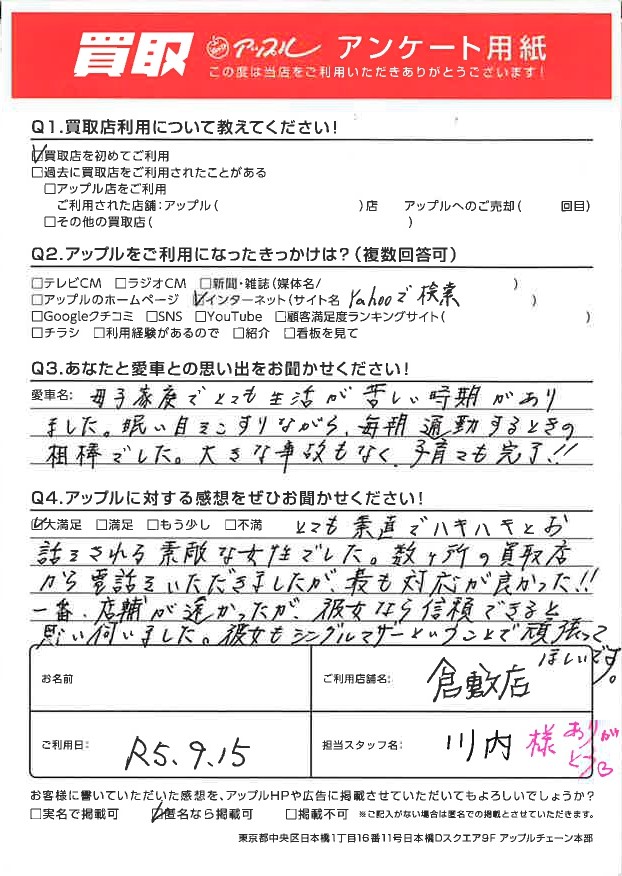 買取 アップル アンケート用紙
この度は当店をご利用いただきありがとうございます!
Q1.買取店利用について教えてください!
☑買取店を初めてご利用
□過去に買取店をご利用されたことがある
□アップル店をご利用
ご利用された店舗:アップル( )店 アップルへのご売却( 回目)
□その他の買取店( )
Q2.アップルをご利用になったきっかけは?(複数回答可)
□テレビCM □ラジオCM □新聞・雑誌(媒体名/ )
□アップルのホームページ ☑インターネット(サイト名 Yahooで検索 )
□Googleクチコミ □SNS □YouTube □顧客満足度ランキングサイト( )
□チラシ □利用経験があるので □紹介 □看板を見て
Q3.あなたと愛車との思い出をお聞かせください!
愛車名: 母子家庭でとても生活が苦しい時期があり
ました。眠い目をこすりながら、毎朝通勤するときの
相棒でした。大きな事故もなく、子育ても完了!!
Q4.アップルに対する感想をぜひお聞かせください!
☑大満足 □満足 □もう少し □不満 とても素直でハキハキとお
話をされる素敵な女性でした。数ヶ所の買取店
から電話をいただきましたが最も対応が良かった!!
一番、店舗が遠かったが、彼女なら信頼できると
思い伺いました。彼女もシングルマザーということで頑張って
ほしいです。
お名前 ご利用店舗名: 倉敷店
ご利用日: R5.9.15 担当スタッフ名: 川内 様 ありがとう
お客様に書いていただいた感想を、アップルHPや広告に掲載させていただいてもよろしいでしょうか?
□実名で掲載可 ☑匿名なら掲載可 □掲載不可 ※ご記入がない場合は匿名での掲載とさせていただきます。
東京都中央区日本橋1丁目16番11号日本橋Dスクエア9F アップルチェーン本部